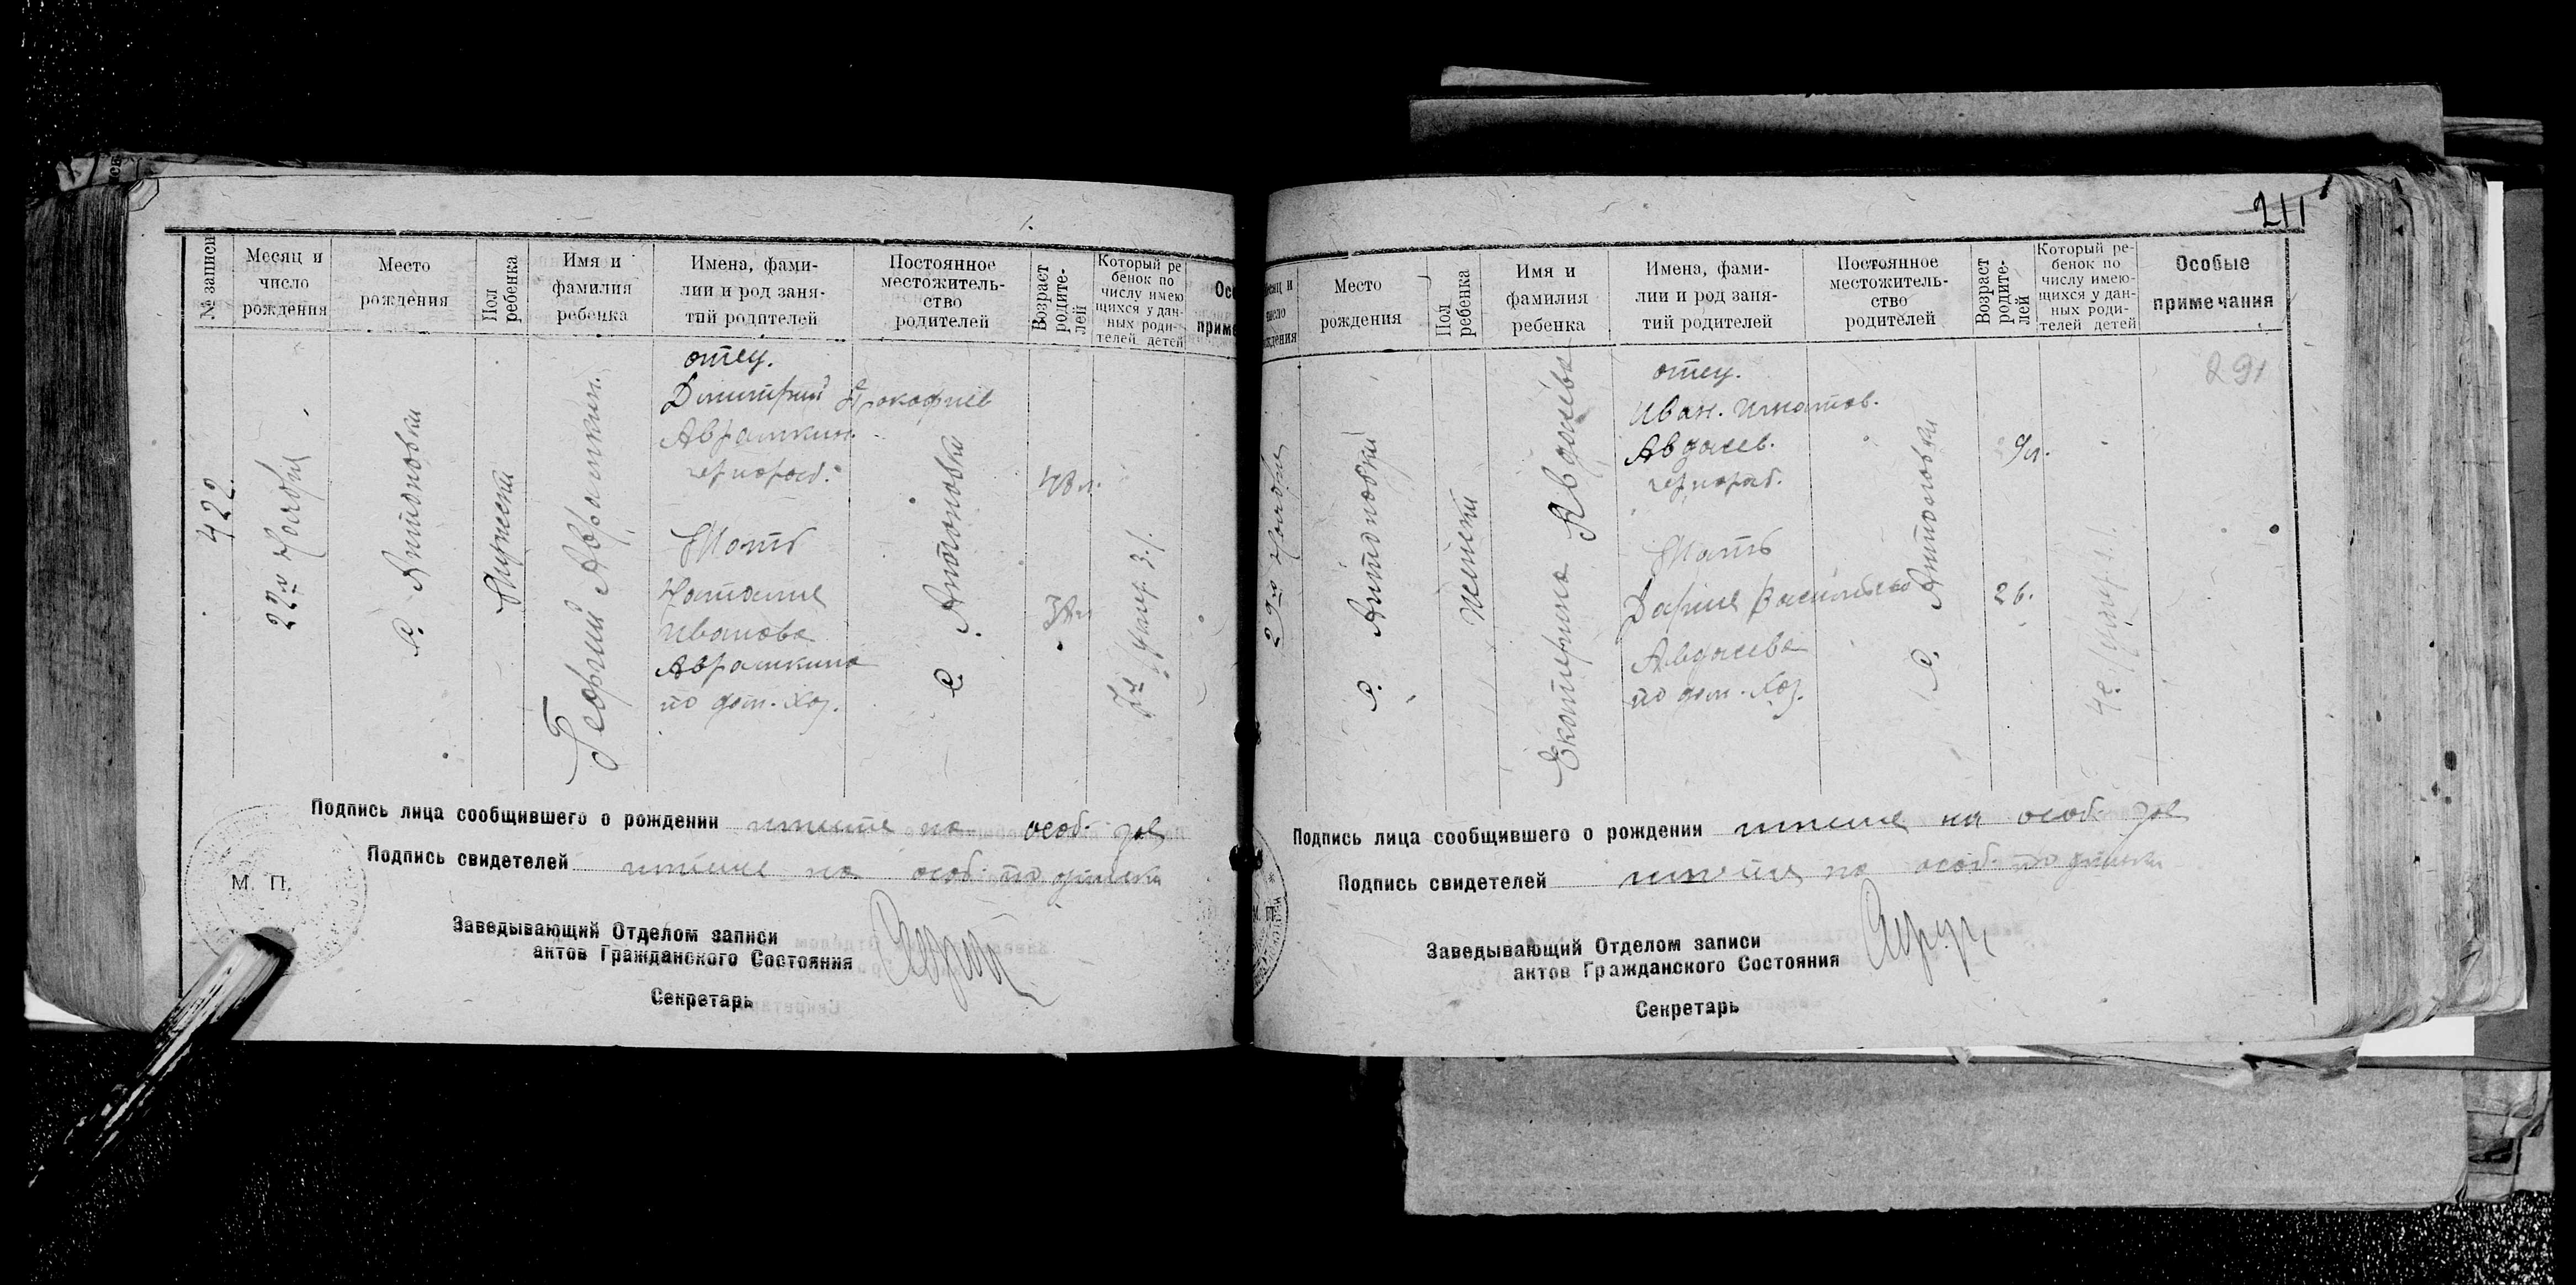 № записи
Месяц и число рождения
Место рождения
Пол ребенка
Имя и фамилия ребенка
Имена, фамилии и род занятий родителей
Постоянное местожительство родителей
Возраст родителей
Который ребенок по числу имеющихся у данных родителей детей
422
22го Ноября
с. Антоновки
Мужески
Георгий Аврашкин.
отец.
Димитрий Прокофиев
Аврашкин.
чернораб.
Мать
Наталия
Иванова
Аврашкина
по дом. хоз.
с. Антоновки
48 л.
Подпись лица сообщившего о рождении
особ.
Подпись свидетелей
особ.
М. П.
Заведывающий Отделом записи
актов Гражданского Состояния
Секретарь
211
Место рождения
Пол ребенка
Имя и фамилия ребенка
Имена, фамилии и род занятий родителей
Постоянное местожительство родителей
Возраст родителей
Который ребенок по числу имеющихся у данных родителей детей
Особые примечания
291
Ноября
с. Антоновки
Женски
Екатерина Авдеева
отец.
Иван. Игнатов.
Авдеев.
чернораб.
Мать
Дария Васильева
Авдеева
по дом. хоз.
с. Антоновки
26.
Подпись лица сообщившего о рождении
на особ.
Подпись свидетелей
особ.
М. П.
Заведывающий Отделом записи
актов Гражданского Состояния
Секретарь